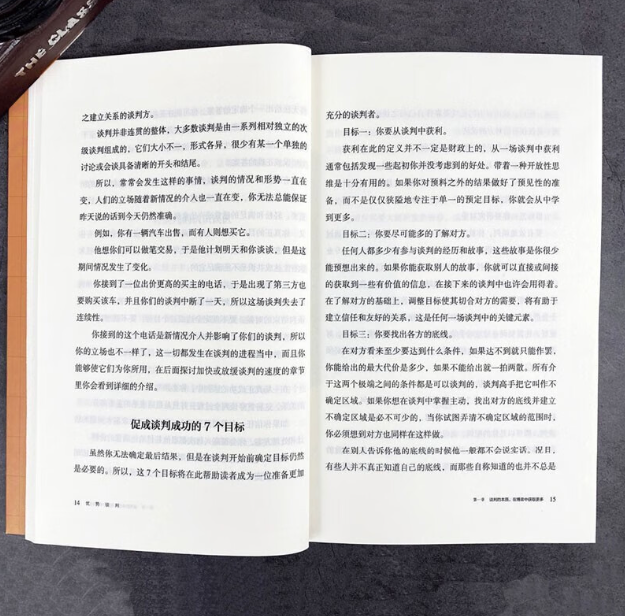 THE CLASS
之建立关系的谈判方。
谈判并非连贯的整体，大多数谈判是由一系列相对独立的次
级谈判组成的，它们大小不一，形式各异，很少有某一个单独的
讨论或会谈具备清晰的开头和结尾。
所以，常常会发生这样的事情，谈判的情况和形势一直在
变，人们的立场随着新情况的介入也一直在变，你无法总能保证
昨天说的话到今天仍然准确。
例如，你有一辆汽车出售，而有人则想买它。
他想你们可以做笔交易，于是他计划明天和你谈谈，但是这
期间情况发生了变化。
你接到了一位出价更高的买主的电话，于是出现了第三方也
要购买该车，并且你们的谈判中断了一天，所以这场谈判失去了
连续性。
你接到的这个电话是新情况介入并影响了你们的谈判，所以
你的立场也不一样了，这一切都发生在谈判的进程当中，而且你
能够使它们为你所用，在后面探讨加快或放缓谈判的速度的章节
里你会看到详细的介绍。
促成谈判成功的7个目标
虽然你无法确定最后结果，但是在谈判开始前确定目标仍然
是必要的。所以，这7个目标将在此帮助读者成为一位准备更加
14
充分的谈判者。
目标一：你要从谈判中获利。
获利在此的定义并不一定是财政上的，从一场谈判中获利
通常包括发现一些起初你并没考虑到的好处。带着一种开放性思
维是十分有用的。如果你对预料之外的结果做好了预见性的准
备，而不是仅仅狭隘地专注于单一的预定目标，你就会从中学
到更多。
目标二：你要尽可能多的了解对方。
任何人都多少有参与谈判的经历和故事，这些故事是你很少
能预想出来的。如果你能获取别人的故事，你就可以直接或间接
的获取到一些有价值的信息，在接下来的谈判中也许会用得着。
在了解对方的基础上，调整目标使其切合对方的需要，将有助于
建立信任和友好的关系，这是任何一场谈判中的关键元素。
目标三：你要找出各方的底线。
在对方看来至少要达到什么条件，如果达不到就只能作罢，
你能给出的最大代价是多少，如果不能给出就一拍两散。所有介
于这两个极端之间的条件都是可以谈判的，谈判高手把它叫作不
确定区域。如果你想在谈判中掌握主动，找出对方的底线并建立
不确定区域是必不可少的，当你试图弄清不确定区域的范围时，
你必须想到对方也同样在这样做。
在别人告诉你他的底线的时候他一般都不会说实话。况且，
有些人并不真正知道自己的底线，而那些自称知道的也并不总是
15